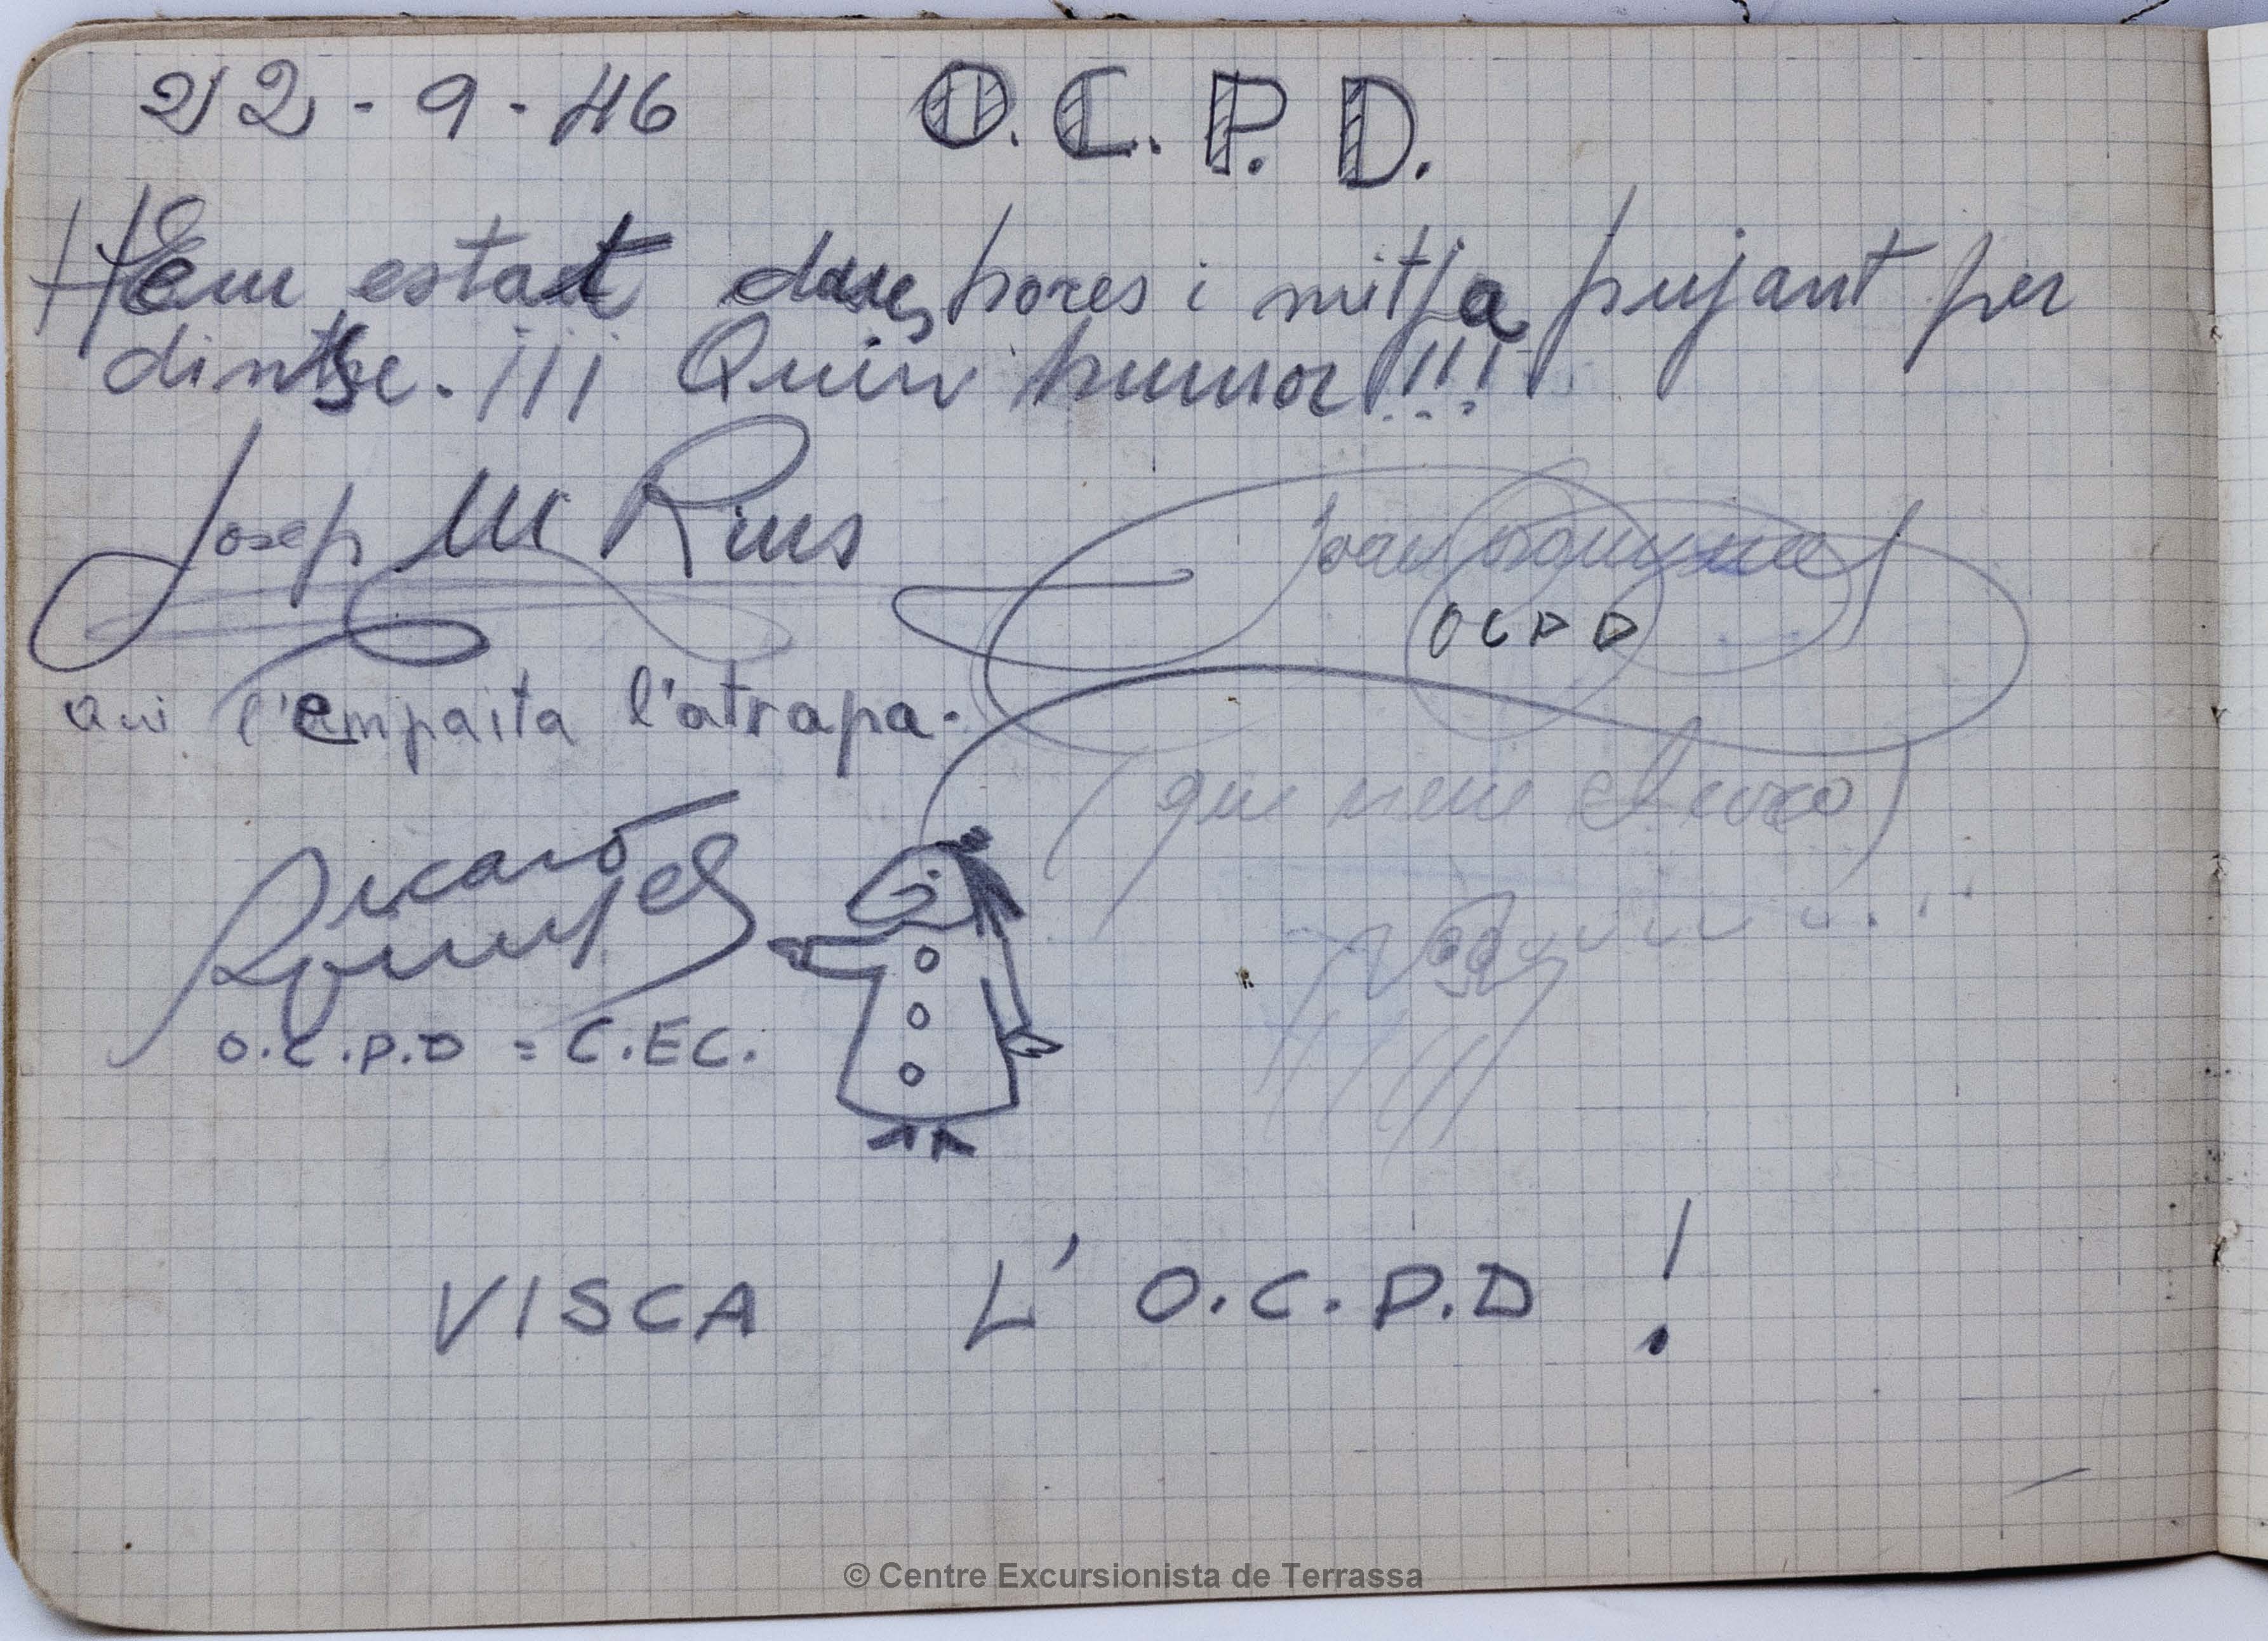 22-9-46 O.C.P.D.
Hem estat dues hores i mitja pujant per
dintre. ¡¡¡ Quin humor!!!
Josep M Rius
Joan
O C P D
qui l'empaita l'atrapa.
(que viene el coco)
Ricard
O.C.P.D = C.E.C.
VISCA L'O.C.P.D!
© Centre Excursionista de Terrassa